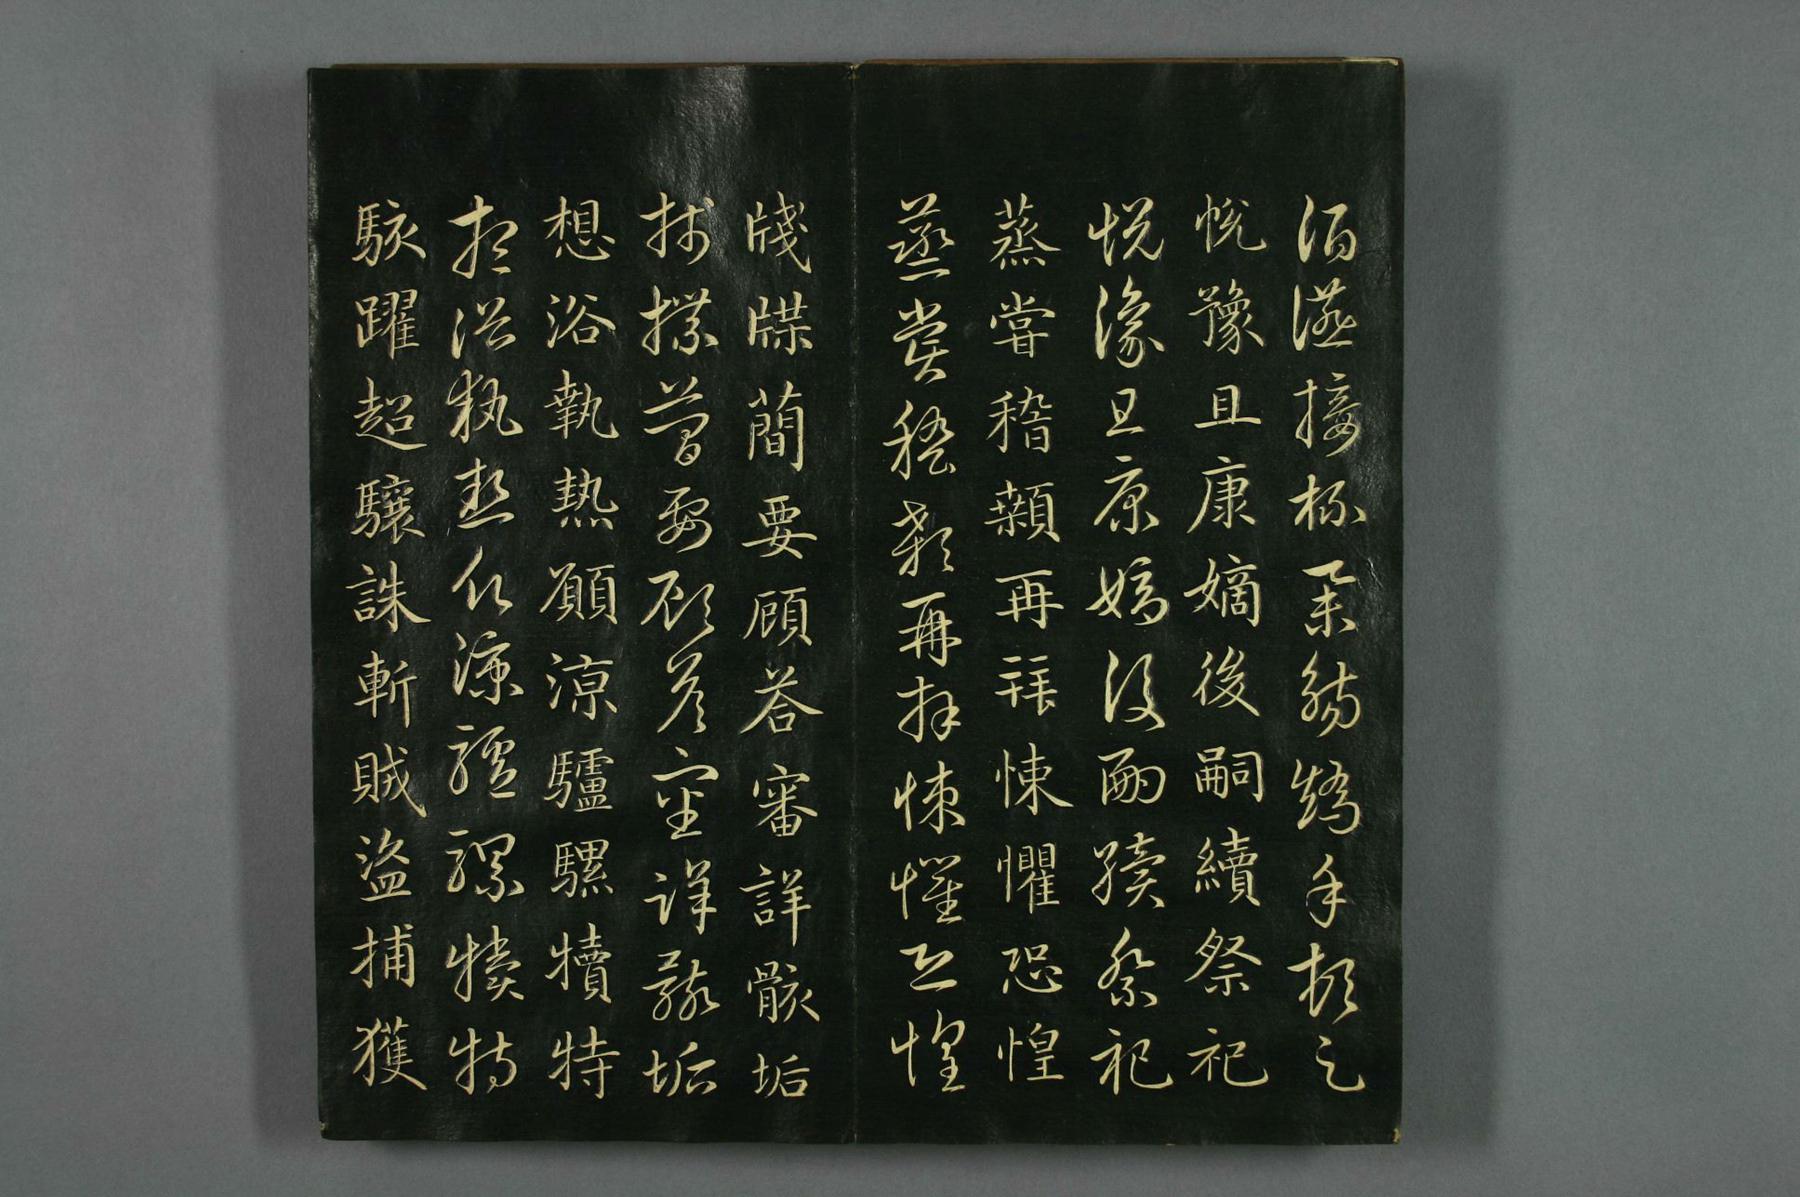 酒讌接杯舉觴矯手頓足
悅豫且康嫡後嗣續祭祀
悅豫且康嫡後嗣續祭祀
蒸甞稽顙再拜悚懼恐惶
蒸甞稽顙再拜悚懼恐惶
牋牒簡要顧荅審詳骸垢
牋牒簡要顧荅審詳骸垢
想浴執熱願涼驢騾犢特
想浴執熱願涼驢騾犢特
駭躍超驤誅斬賊盜捕獲